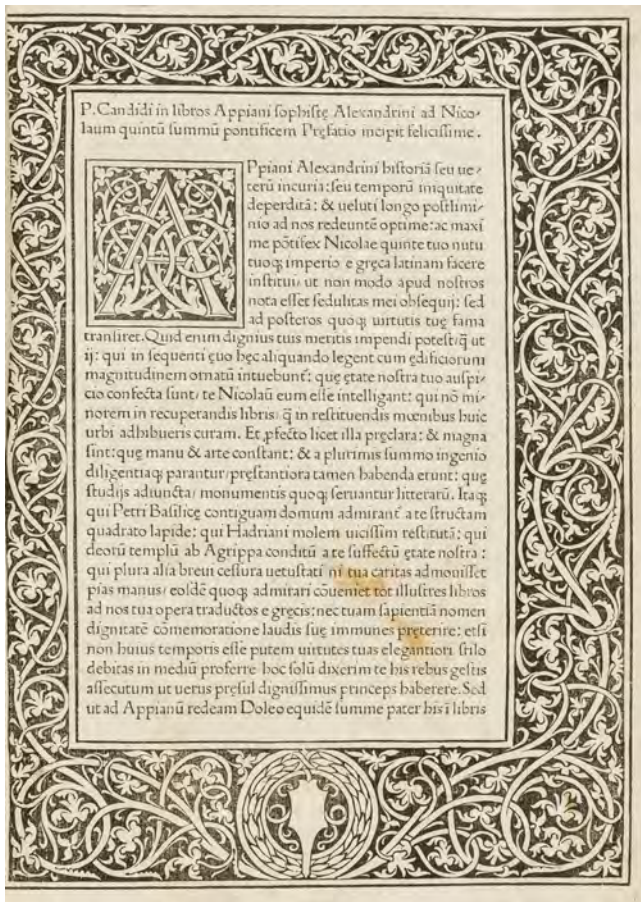 P. Candidi in libros Appiani sophistę Alexandrini ad Nico-
laum quintū summū pontificem Pręfatio incipit felicissime.
APpiani Alexandrini historiā seu ue-
terū incuria: seu temporū iniquitate
deperditā: & ueluti longo postlimi-
nio ad nos redeuntē optime: ac maxi
me pōtifex Nicolae quinte tuo nutu
tuoq; imperio e gręca latinam facere
institui: ut non modo apud nostros
nota esset sedulitas mei obsequij: sed
ad posteros quoq; uirtutis tuę fama
transiret. Quid enim dignius tuis meritis impendi potest: q̄ ut
ij: qui in sequenti ęuo hęc aliquando legent cum ędificiorum
magnitudinem ornatū intuebunt᷑: quę ętate nostra tuo auspi-
cio confecta sunt: te Nicolaū eum esse intelligant: qui nō mi-
norem in recuperandis libris: q̄ in restituendis mœnibus huic
urbi adhibueris curam. Et ꝓfecto licet illa pręclara: & magna
sint: quę manu & arte constant: & a plurimis summo ingenio
diligentiaq; parantur: pręstantiora tamen habenda erunt: quę
studijs adiuncta: monumentis quoq; seruantur litterarū. Itaq;
qui Petri Basilicę contiguam domum admirant᷑ a te structam
quadrato lapide: qui Hadriani molem uicissim restitutā: qui
deorū templū ab Agrippa conditū a te suffectū ętate nostra:
qui plura alia breui cessura uetustati ni tua caritas admouisset
pias manus: eosdē quoq; admirari cōueniet tot illustres libros
ad nos tua opera traductos e gręcis: nec tuam sapientiā nomen
dignitatē cōmemoratione laudis suę immunes pręterire: etsi
non huius temporis esse putem uirtutes tuas elegantiori stilo
debitas in mediū proferre hoc solū dixerim te his rebus gestis
assecutum ut uerus pręsul dignissimus princeps haberere. Sed
ut ad Appianū redeam Doleo equidē summe pater his ī libris